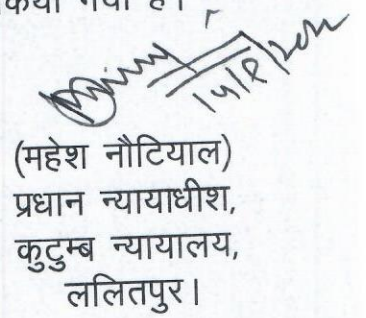 किया गया है।
(महेश नौटियाल)
प्रधान न्यायाधीश,
कुटुम्ब न्यायालय,
ललितपुर।